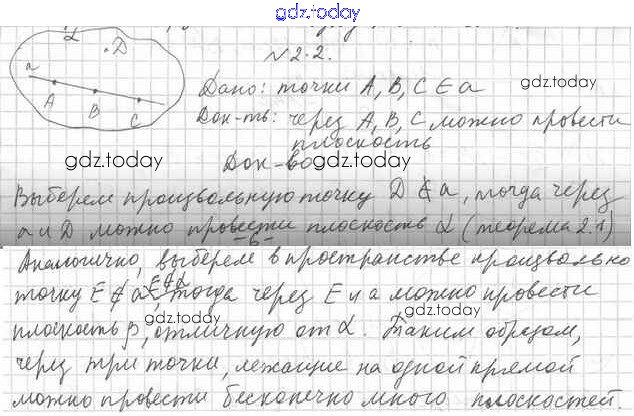 gdz.today
α
D
№ 2.2.
a
A
B
C
Дано: точки A, B, C ∈ a
gdz.today
Док-ть: через A, B, C можно провести
плоскость
gdz.today
gdz.today
Док-во
Выберем произвольную точку D ∉ a, тогда через
a и D можно провести плоскость α (теорема 2.1)
-6-
Аналогично, выберем в пространстве произвольно
точку E ∉ a, E ∉ α тогда через E и a можно провести
gdz.today
gdz.today
плоскость β, отличную от α. Таким образом,
через три точки, лежащие на одной прямой
можно провести бесконечно много плоскостей.
gdz.today
gdz.today